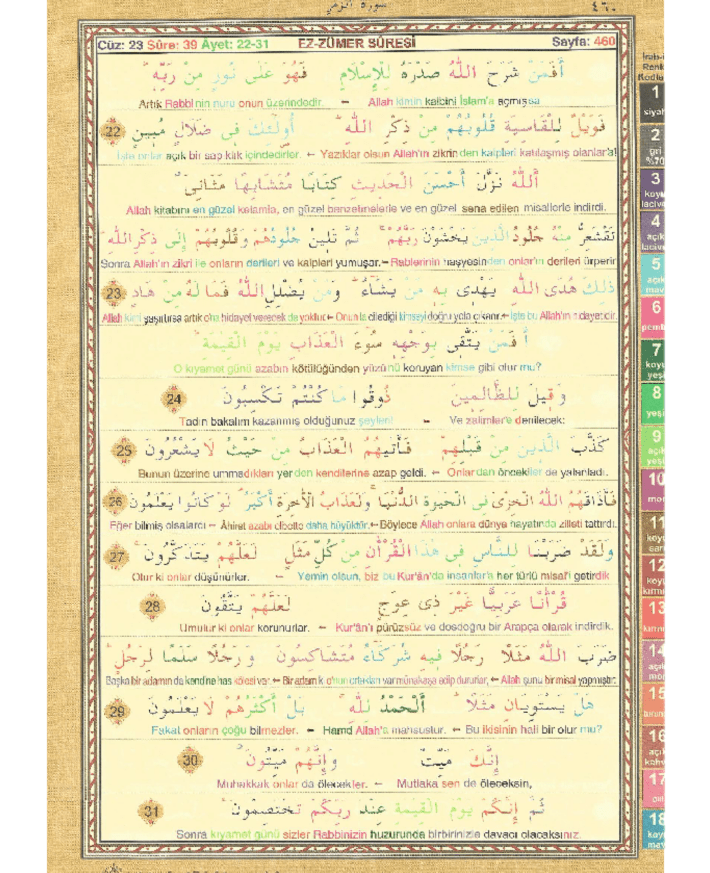 سورة الزمر ٤٦٠
Cüz: 23 Sûre: 39 Âyet: 22-31 EZ-ZÜMER SÛRESİ Sayfa: 460
أَفَمَنْ شَرَحَ اللّٰهُ صَدْرَهُ لِلْإِسْلَامِ فَهُوَ عَلٰى نُورٍ مِنْ رَبِّهِ
Artık Rabbi'nin nuru onun üzerindedir. – Allah kimin kalbini İslam'a açmışsa
فَوَيْلٌ لِلْقَاسِيَةِ قُلُوبُهُمْ مِنْ ذِكْرِ اللّٰهِ أُولٰئِكَ فِى ضَلَالٍ مُبِينٍ 22
İşte onlar açık bir sapıklık içindedirler. ← Yazıklar olsun Allah'ın zikrinden kalpleri katılaşmış olanlar'a!
اَللّٰهُ نَزَّلَ أَحْسَنَ الْحَدِيثِ كِتَابًا مُتَشَابِهًا مَثَانِىَ
Allah kitabını en güzel kelamla, en güzel benzetmelerle ve en güzel sena edilen misallerle indirdi.
تَقْشَعِرُّ مِنْهُ جُلُودُ الَّذِينَ يَخْشَوْنَ رَبَّهُمْ ثُمَّ تَلِينُ جُلُودُهُمْ وَقُلُوبُهُمْ إِلٰى ذِكْرِ اللّٰهِ
Sonra Allah'ın zikri ile onların derileri ve kalpleri yumuşar. ← Rablerinin haşyesinden onların derileri ürperir
ذٰلِكَ هُدَى اللّٰهِ يَهْدِى بِهِ مَنْ يَشَاءُ وَمَنْ يُضْلِلِ اللّٰهُ فَمَا لَهُ مِنْ هَادٍ 23
Allah kimi şaşırtırsa artık ona hidayet verecek de yoktur. ← Onunla dilediği kimseyi doğru yola çıkarır. ← İşte bu Allah'ın hidayetidir.
أَفَمَنْ يَتَّقِى بِوَجْهِهِ سُوءَ الْعَذَابِ يَوْمَ الْقِيٰمَةِ
O kıyamet günü azabın kötülüğünden yüzünü koruyan kimse gibi olur mu?
وَقِيلَ لِلظَّالِمِينَ ذُوقُوا مَا كُنْتُمْ تَكْسِبُونَ 24
Tadın bakalım kazanmış olduğunuz şeyleri! – Ve zalimler'e denilecek:
كَذَّبَ الَّذِينَ مِنْ قَبْلِهِمْ فَأَتٰيهُمُ الْعَذَابُ مِنْ حَيْثُ لَا يَشْعُرُونَ 25
Bunun üzerine ummadıkları yerden kendilerine azap geldi. ← Onlardan öncekiler de yalanladı.
فَأَذَاقَهُمُ اللّٰهُ الْخِزْىَ فِى الْحَيٰوةِ الدُّنْيَا وَلَعَذَابُ الْأٰخِرَةِ أَكْبَرُ لَوْ كَانُوا يَعْلَمُونَ 26
Eğer bilmiş olsalardı ← Âhiret azabı elbette daha büyüktür. ← Böylece Allah onlara dünya hayatında zilleti tattırdı.
وَلَقَدْ ضَرَبْنَا لِلنَّاسِ فِى هٰذَا الْقُرْأٰنِ مِنْ كُلِّ مَثَلٍ لَعَلَّهُمْ يَتَذَكَّرُونَ 27
Olur ki onlar düşünürler. ← Yemin olsun, biz bu Kur'ân'da insanlar'a her türlü misal'i getirdik
قُرْأٰنًا عَرَبِيًّا غَيْرَ ذِى عِوَجٍ لَعَلَّهُمْ يَتَّقُونَ 28
Umulur ki onlar korunurlar. ← Kur'ân'ı pürüzsüz ve dosdoğru bir Arapça olarak indirdik.
ضَرَبَ اللّٰهُ مَثَلًا رَجُلًا فِيهِ شُرَكَاءُ مُتَشَاكِسُونَ وَرَجُلًا سَلَمًا لِرَجُلٍ
Başka bir adamın da kendine has kölesi var. ← Bir adam ki onun ortakları var münakaşa edip dururlar, ← Allah şunu bir misal yapmıştır:
هَلْ يَسْتَوِيَانِ مَثَلًا اَلْحَمْدُ لِلّٰهِ بَلْ أَكْثَرُهُمْ لَا يَعْلَمُونَ 29
Fakat onların çoğu bilmezler. ← Hamd Allah'a mahsustur. ← Bu ikisinin hali bir olur mu?
إِنَّكَ مَيِّتٌ وَإِنَّهُمْ مَيِّتُونَ 30
Muhakkak onlar da ölecekler. ← Mutlaka sen de öleceksin,
ثُمَّ إِنَّكُمْ يَوْمَ الْقِيٰمَةِ عِنْدَ رَبِّكُمْ تَخْتَصِمُونَ 31
Sonra kıyamet günü sizler Rabbinizin huzurunda birbirinizle davacı olacaksınız.
1
siyah
2
gri
%70
3
koyu
laciver
4
açık
laciver
5
açık
mavi
6
pembe
7
koyu
yeşi
8
yeşi
9
açık
yeşi
10
mor
11
koyu
sarı
12
koyu
kırmı
13
14
açık
mor
15
16
açık
kahv
17
18
koyu
mavi